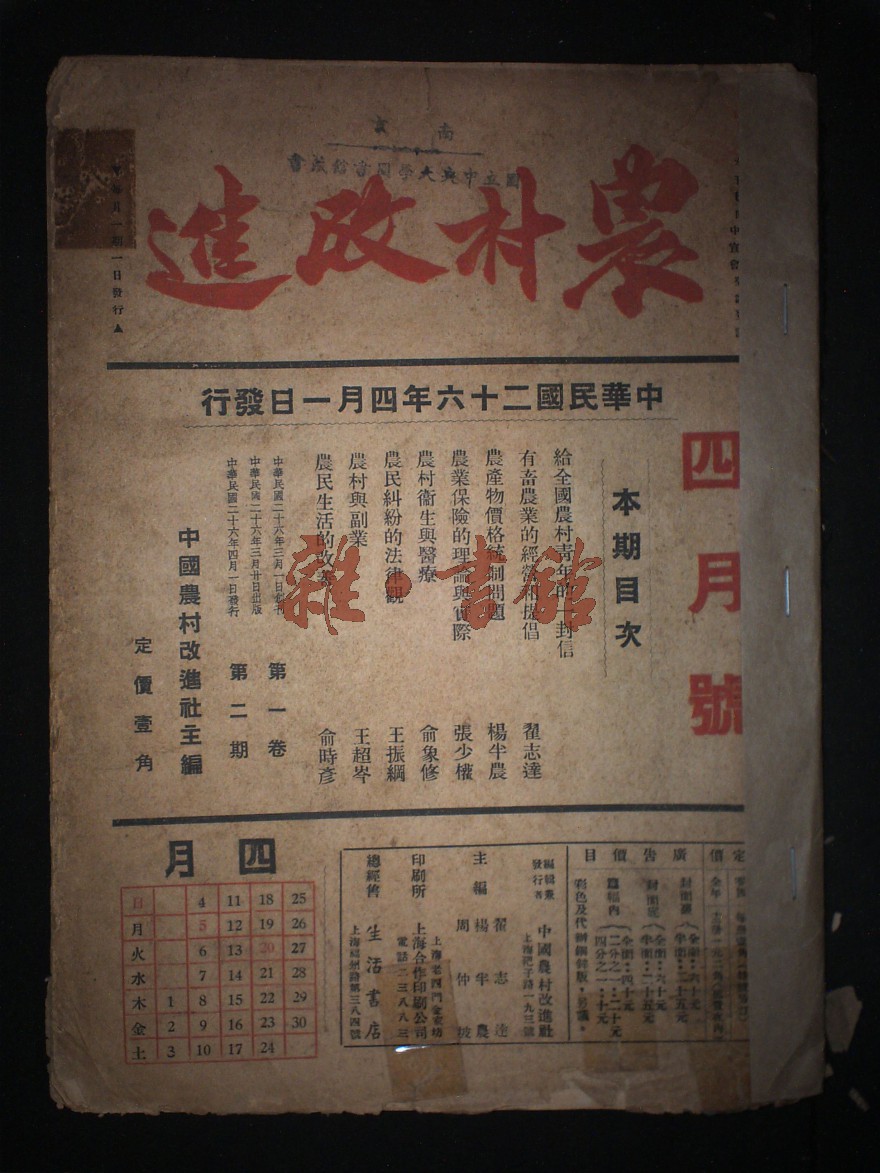 南京
國立中央大學圖書館藏書
農村改進
每月一期一日發行▲
中華民國二十六年四月一日發行
四月號
本期目次
給全國農村青年的一封信
有畜農業的經營和提倡 翟志達
農產物價格統制問題 楊半農
農業保險的理論與實際 張少權
農村衞生與醫療 俞象修
農民糾紛的法律觀 王振綱
農村與副業 王超岑
農民生活的改善 俞時彥
中華民國二十六年三月一日創刊
中華民國二十六年三月廿日出版
中華民國二十六年四月一日發行
第一卷
第二期
中國農村改進社主編
定價壹角
雜·書館
定價
廣告價目
封面裏
全面:六十元
半面:三十五元
封面底
全面:六十元
半面:三十五元
篇幅內
全面:四十元
二分之一:二十元
四分之一:十元
彩色及代製銅鋅版,另議。
編輯兼發行者 中國農村改進社
主編 翟志達 楊半農 周仲
印刷所 上海合作印刷公司
電話二三八八三
總經售 生活書店
上海福州路第三八四號
四月
日 4 11 18 25
月 5 12 19 26
火 6 13 20 27
水 7 14 21 28
木 1 8 15 22 29
金 2 9 16 23 30
土 3 10 17 24